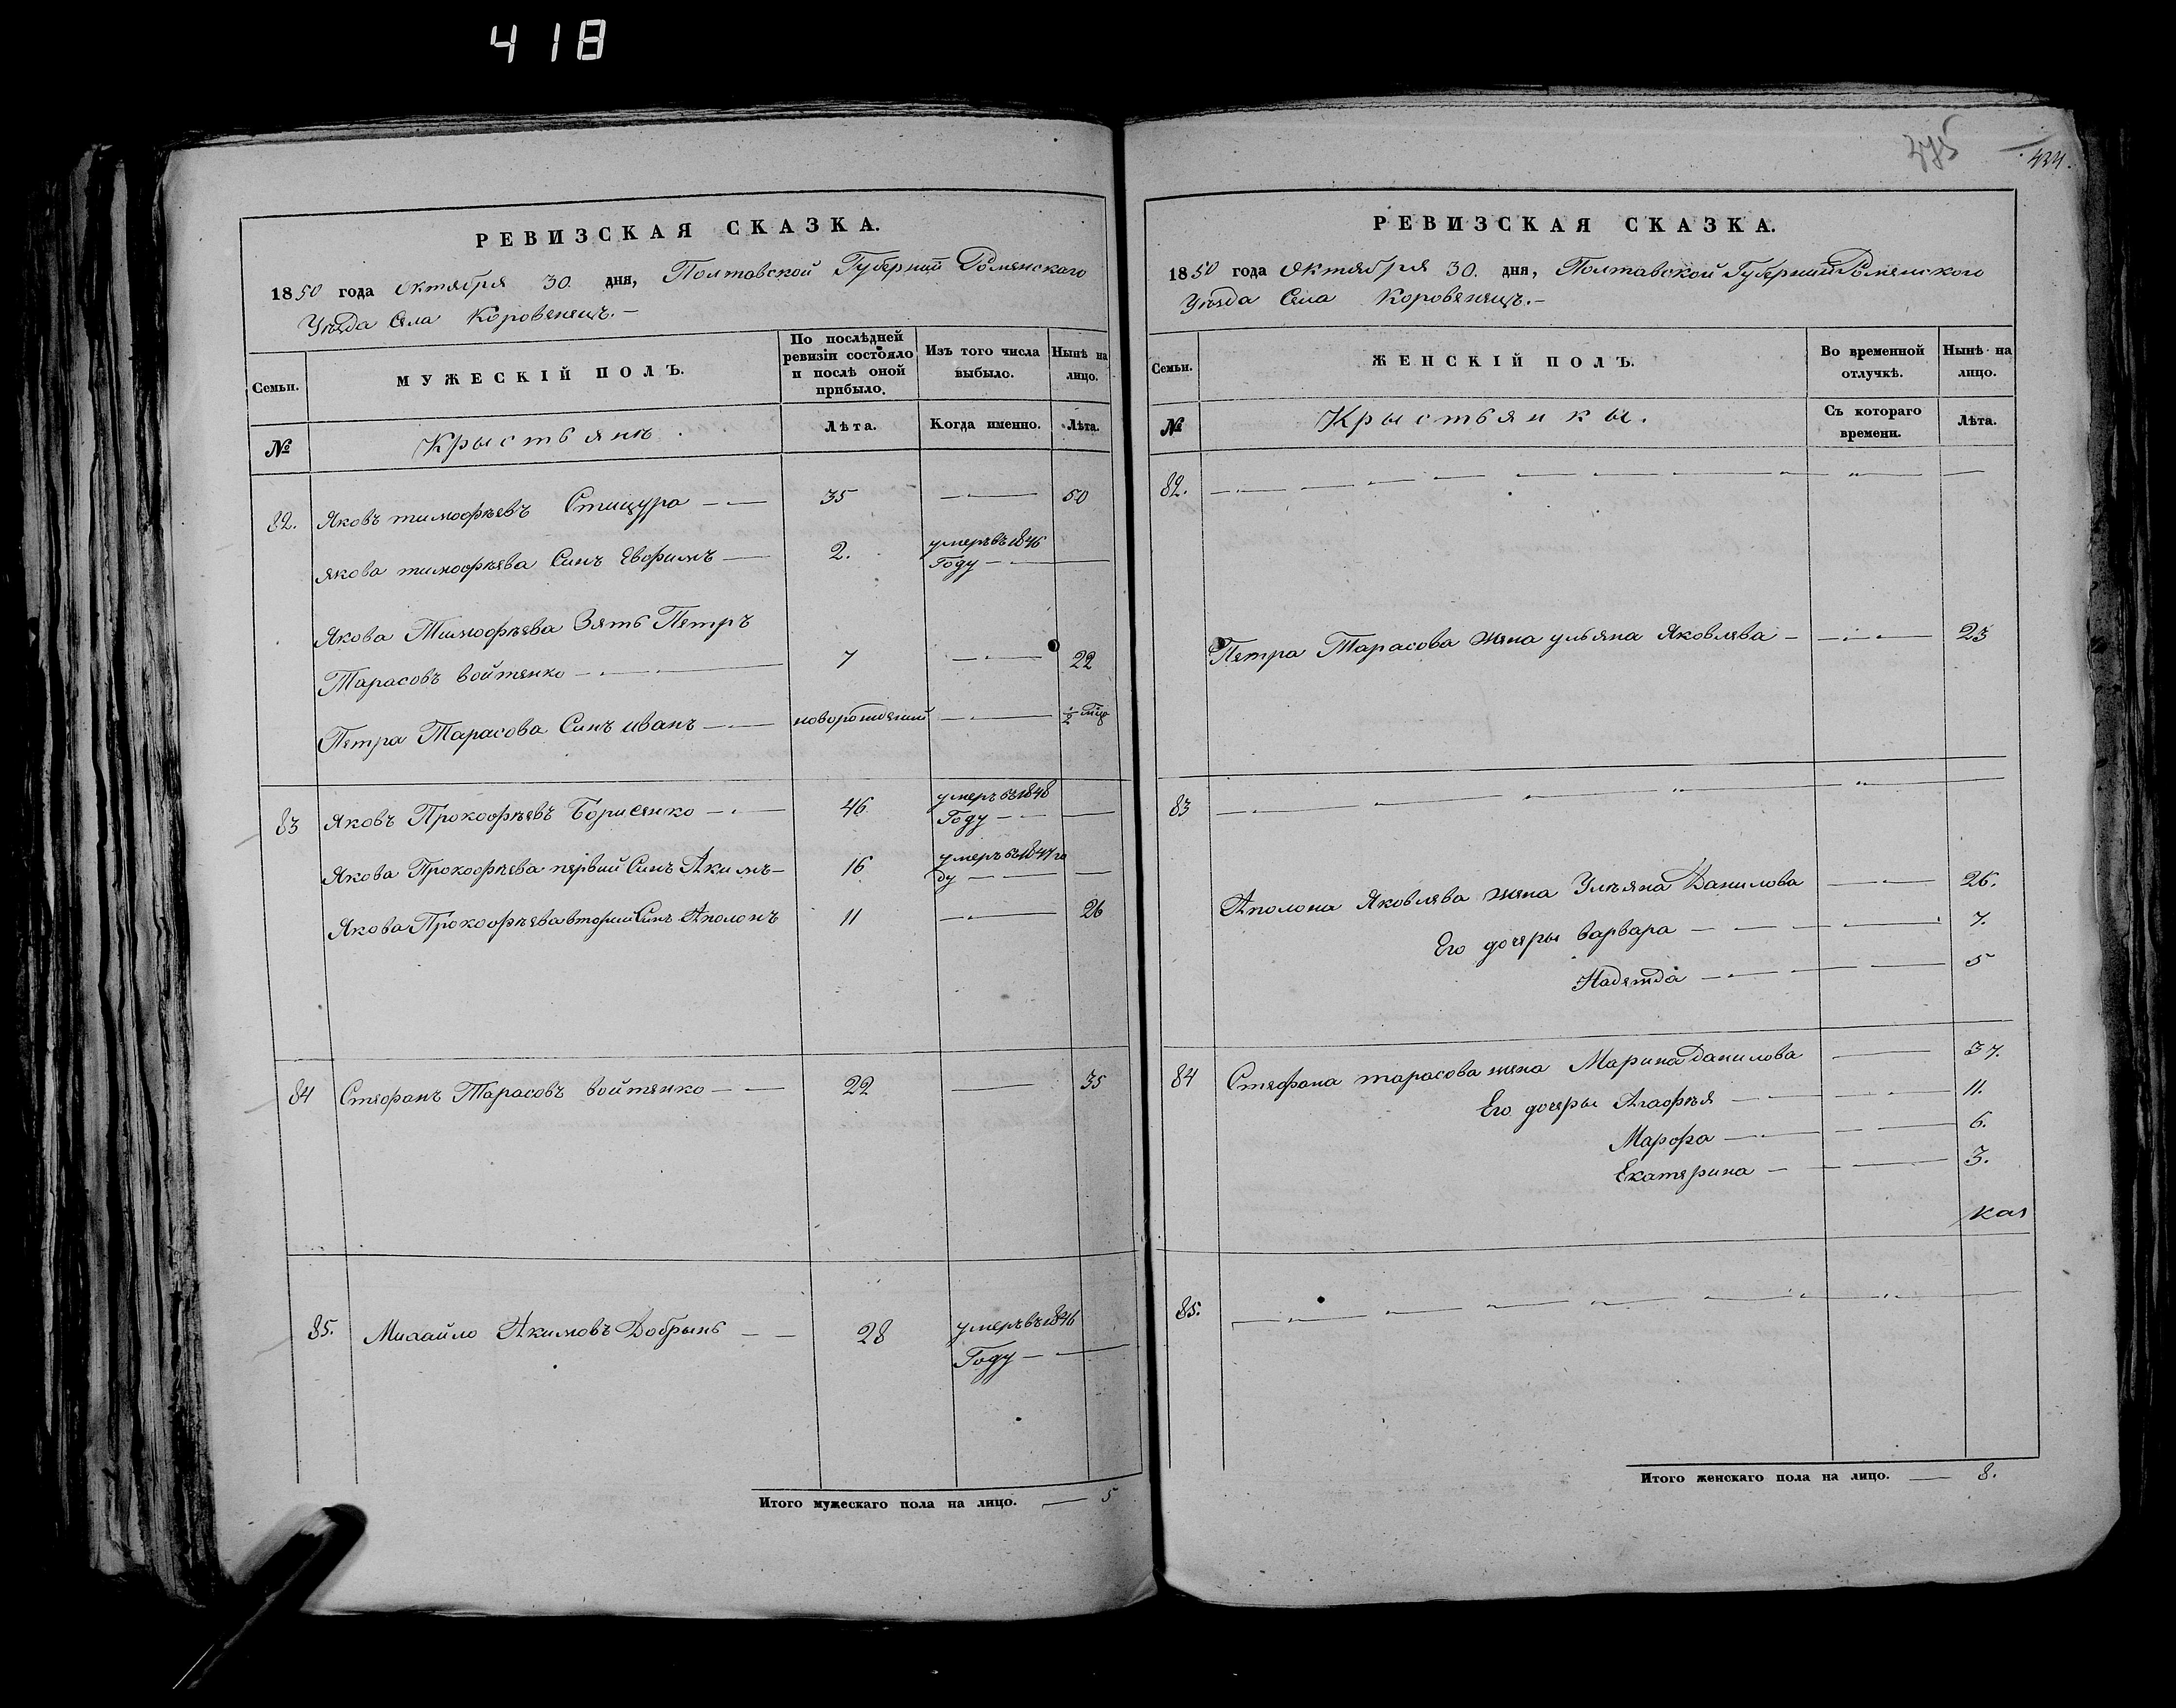 418
РЕВИЗСКАЯ СКАЗКА.
1850 года Октября 30 дня, Полтавской Губернии Роменского
Уѣзда Села Коровенецъ.-
Семьи.
МУЖЕСКІЙ ПОЛЪ.
По послѣдней ревизіи состояло и послѣ оной прибыло.
Изъ того числа выбыло.
Нынѣ на лицо.
№
Крыстьянъ.
Лѣта.
Когда именно.
Лѣта.
82. Яковъ тимофѣевъ Стицура — 35 — 50
Якова тимофѣева Синъ Евфимъ — 2. умеръ въ 1846
Году —
Якова Тимофѣева Зять Петръ
Тарасовъ войтенко — 7 — 22
Петра Тарасова Синъ иванъ — новорождений — ½ год
83 Яковъ Прокофѣевъ Борисенко — 46 умеръ въ 1848
Году —
Якова Прокофѣева первий Синъ Акимъ — 16 умеръ въ 1847 го
ду —
Якова Прокофѣева вторий Синъ Аполонъ 11 — 26
84 Стефанъ Тарасовъ войтенко — 22 — 35
85. Михайло Акимовъ Добрынь — 28 умеръ въ 1846
Году —
Итого мужескаго пола на лицо. — 5
375
434.
РЕВИЗСКАЯ СКАЗКА.
1850 года Октября 30. дня, Полтавской Губернии Роменского
Уѣзда Села Коровенецъ.-
Семьи.
ЖЕНСКІЙ ПОЛЪ.
Во временной отлучкѣ.
Нынѣ на лицо.
№
Крыстьянкы.
Съ котораго времени.
Лѣта.
82.
Петра Тарасова жена ульяна Яковлева — 23
83
Аполона Яковлева жена Ульяна Данилова — 26.
Его дочеры варвара — 7.
Надежда — 5
84 Стефана тарасова жена Марина Данилова — 37.
Его дочеры Агафѣя — 11.
Марфа — 6.
Екатерина — 3.
кая
85.
Итого женскаго пола на лицо. — 8.